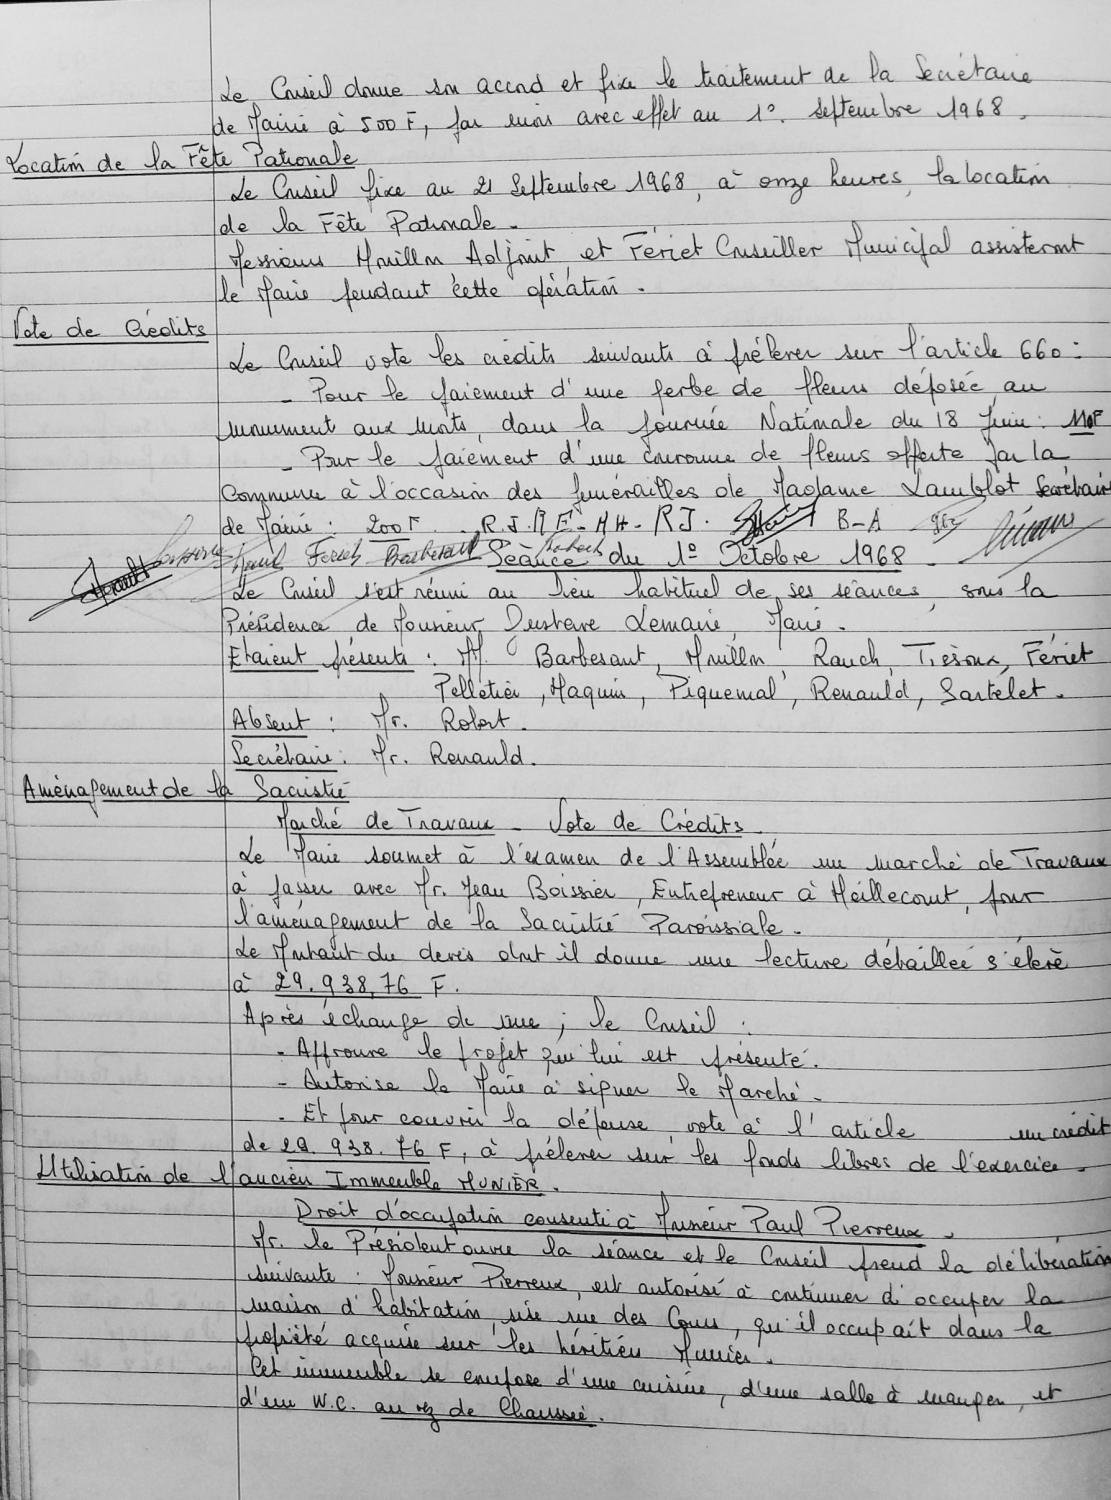 Le Conseil donne son accord et fixe le traitement de la Secrétaire
de Mairie à 500 F, par mois avec effet au 1°. Septembre 1968.
Location de la Fête Patronale
Le Conseil fixe au 21 Septembre 1968, à onze heures, la location
de la Fête Patronale.
Messieurs Mouillon Adjoint, et Fériet Conseiller Municipal assisteront
le Maire pendant cette opération.
Vote de Crédits
Le Conseil vote les crédits suivants à prélever sur l'article 660 :
- Pour le paiement d'une gerbe de fleurs déposée au
monument aux morts, dans la journée Nationale du 18 Juin : 110F
- Pour le paiement d'une couronne de fleurs offerte par la
Commune à l'occasion des funérailles de Madame Lamblot Secrétaire
de Mairie : 200 F. R.J. A E - HH - RJ. B-A
Rauch Feriet Séance du 1° Octobre 1968.
Le Conseil s'est réuni au lieu habituel de ses séances, sous la
Présidence de Monsieur Gustave Lemaire, Maire.
Etaient présents : M. Barbesant, Mouillon, Rauch, Tresoux, Fériet
Pelletier, Maquin, Piquemal, Renauld, Sartelet.
Absent : Mr. Robert.
Secrétaire : Mr. Renauld.
Aménagement de la Sacristie
Marché de Travaux - Vote de Crédits.
Le Maire soumet à l'examen de l'Assemblée un marché de Travaux
à passer avec Mr. Jean Boissier, Entrepreneur à Heillecourt, pour
l'aménagement de la Sacristie Paroissiale.
Le Montant du devis dont il donne une lecture détaillée s'élève
à 29.938,76 F.
Après échange de vue ; le Conseil :
- Approuve le projet qui lui est présenté.
- Autorise le Maire à signer le Marché.
- Et pour couvrir la dépense vote à l'article un crédit
de 29.938.76 F, à prélever sur les fonds libres de l'exercice.
Utilisation de l'ancien Immeuble MUNIER.
Droit d'occupation consenti à Monsieur Paul Pierreux.
Mr. le Président ouvre la séance et le Conseil prend la délibération
suivante : Monsieur Pierreux, est autorisé à continuer d'occuper la
maison d'habitation, sise rue des Cours, qu'il occupait dans la
propriété acquise sur les héritiers Munier.
Cet immeuble se compose d'une cuisine, d'une salle à manger, et
d'un W.C. au rez de Chaussée.